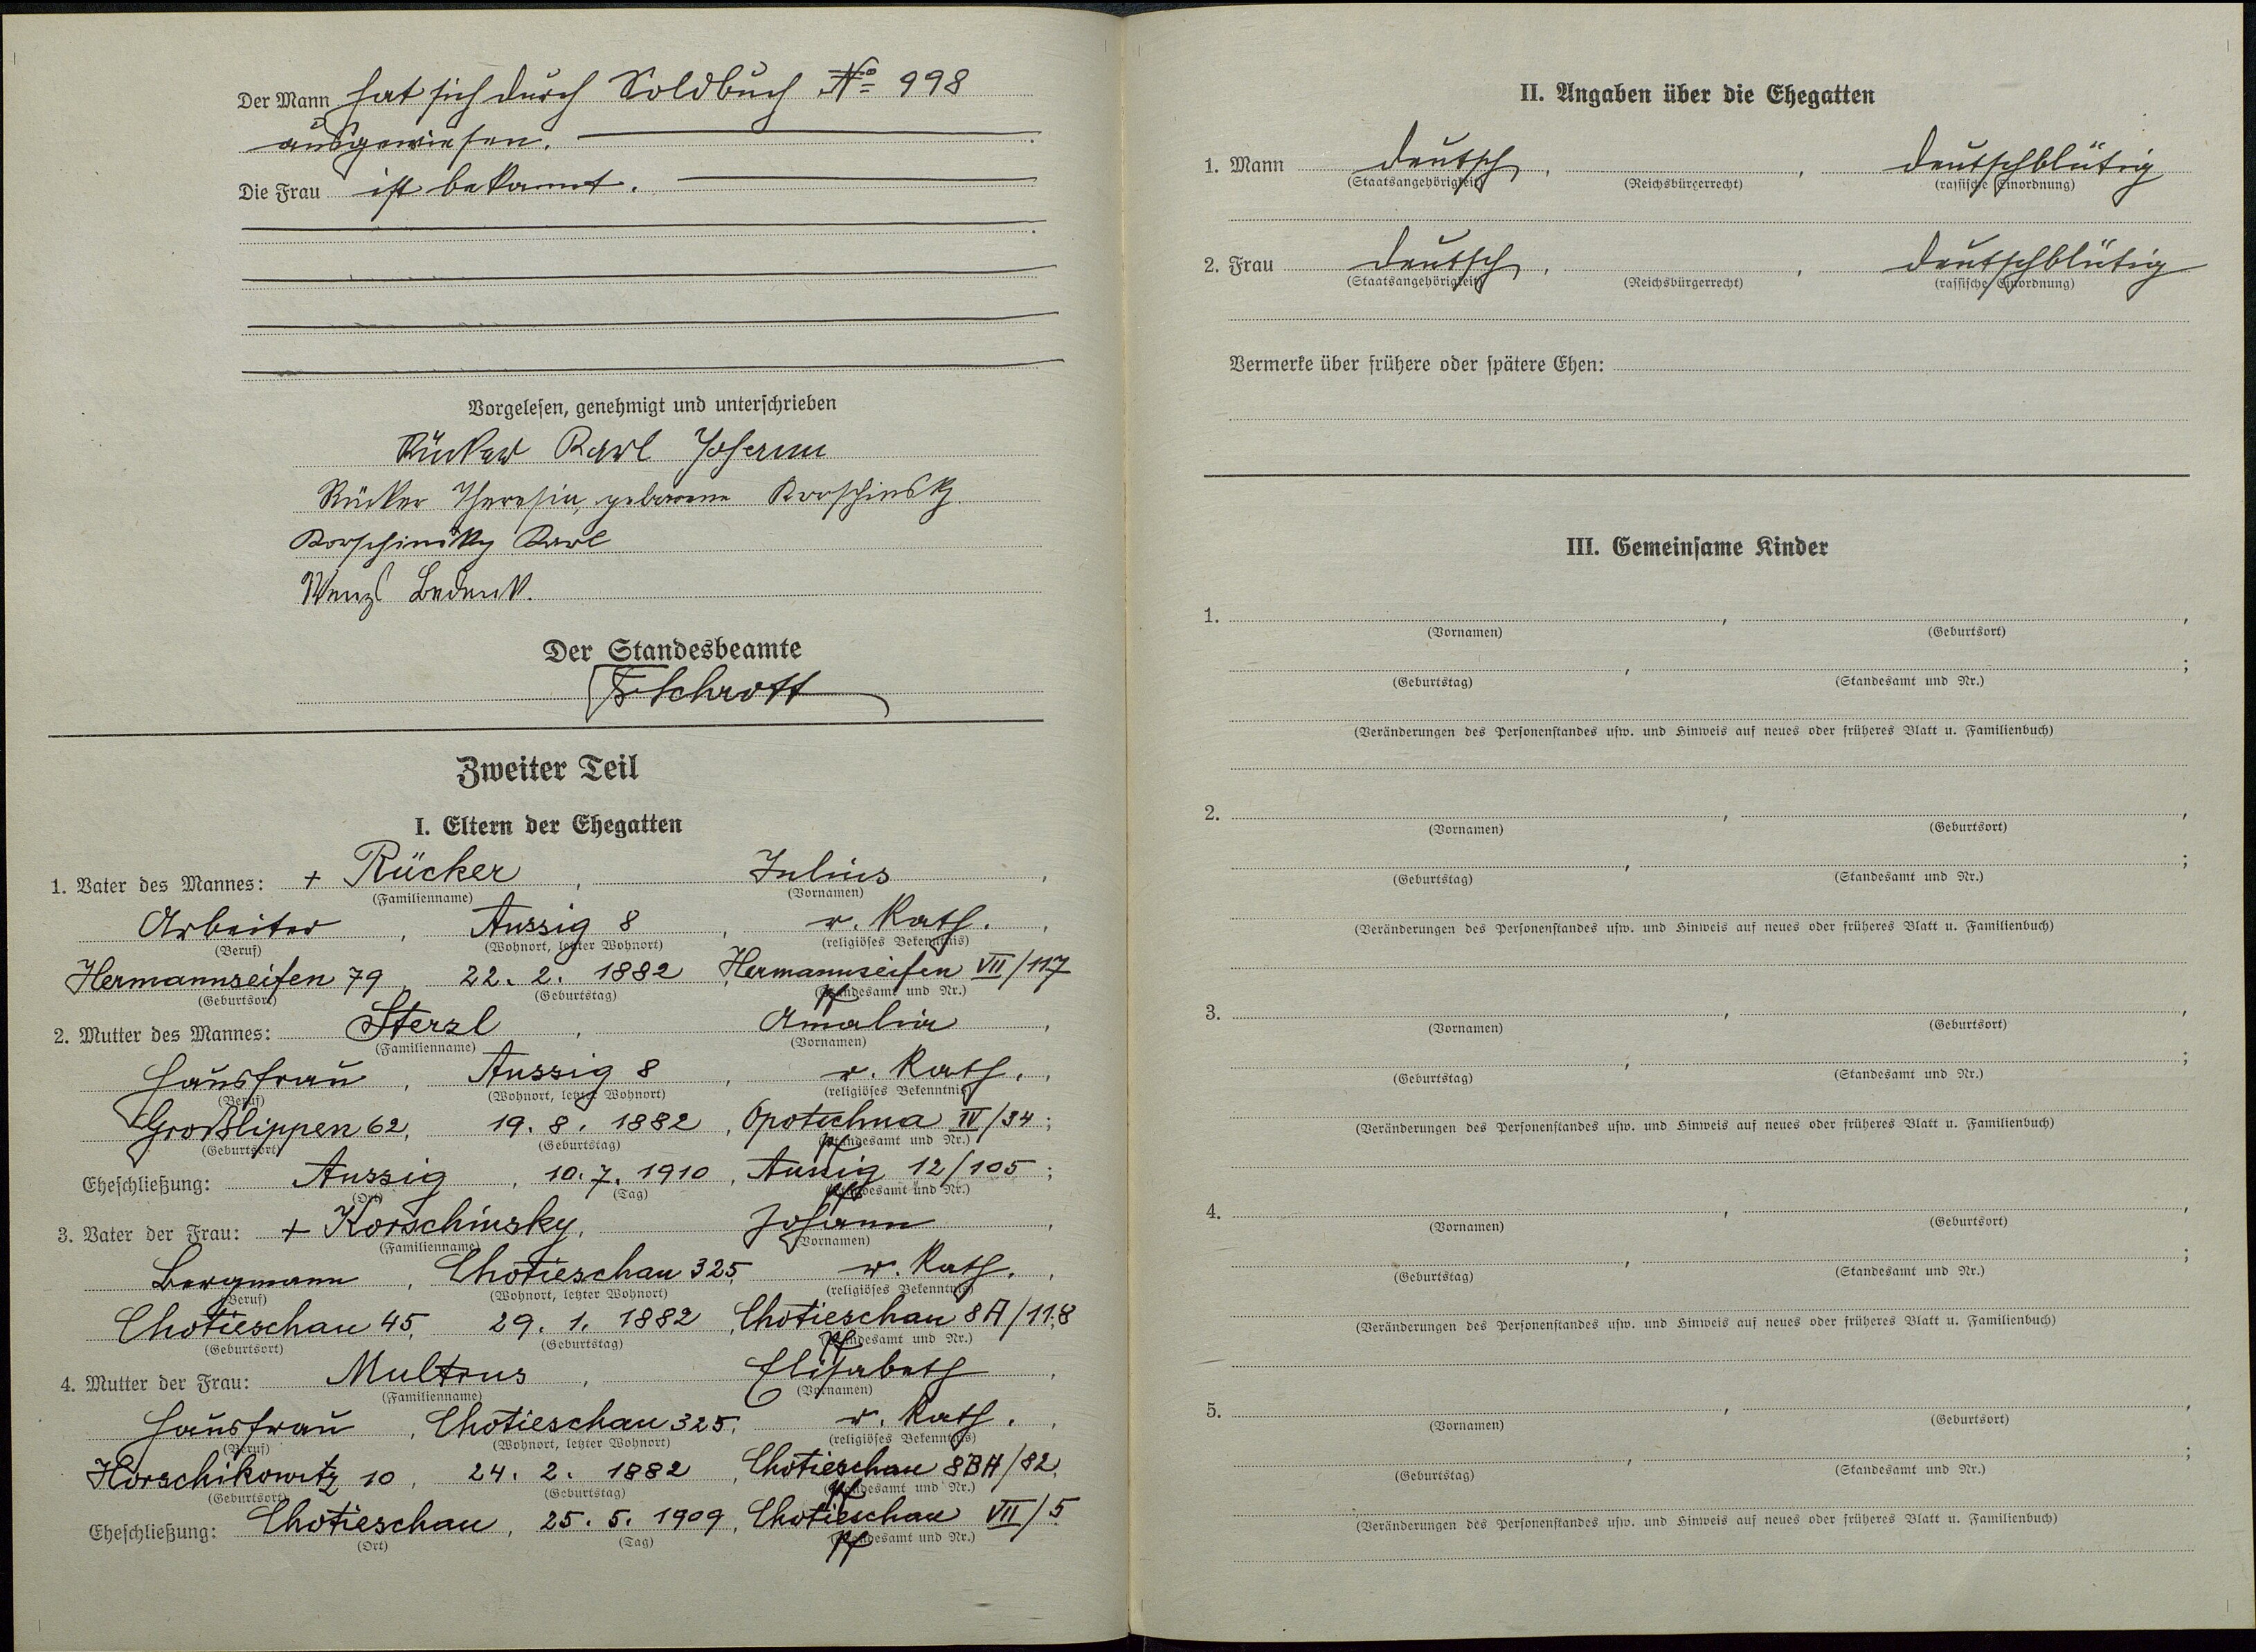 Der Mann hat sich durch Soldbuch № 998
ausgewiesen.
Die Frau ist bekannt.
Vorgelesen, genehmigt und unterschrieben
Rücker Karl Johann
Rücker Theresia, geborene Korschinsky
Korschinsky Karl
Wenzl Bedenk.
Der Standesbeamte
Schrott
Zweiter Teil
I. Eltern der Ehegatten
1. Vater des Mannes: + Rücker, Julius,
(Familienname) (Vornamen)
Arbeiter, Aussig 8, r. kath.,
(Beruf) (Wohnort, letzter Wohnort) (religiöses Bekenntnis)
Hermannseifen 79, 22. 2. 1882, Hermannseifen VII/117
(Geburtsort) (Geburtstag) (Standesamt und Nr.)
2. Mutter des Mannes: Sterzl, Amalia,
(Familienname) (Vornamen)
Hausfrau, Aussig 8, r. kath.,
(Beruf) (Wohnort, letzter Wohnort) (religiöses Bekenntnis)
Großlippen 62, 19. 8. 1882, Opotschna IV/34;
(Geburtsort) (Geburtstag) (Standesamt und Nr.)
Eheschließung: Aussig, 10. 7. 1910, Aussig 12/105;
(Ort) (Tag) (Standesamt und Nr.)
3. Vater der Frau: + Korschinsky, Johann,
(Familienname) (Vornamen)
Bergmann, Chotieschau 325, r. kath.,
(Beruf) (Wohnort, letzter Wohnort) (religiöses Bekenntnis)
Chotieschau 45, 29. 1. 1882, Chotieschau 8A/118
(Geburtsort) (Geburtstag) (Standesamt und Nr.)
4. Mutter der Frau: Multrus, Elisabeth,
(Familienname) (Vornamen)
Hausfrau, Chotieschau 325, r. kath.,
(Beruf) (Wohnort, letzter Wohnort) (religiöses Bekenntnis)
Horschikowitz 10, 24. 2. 1882, Chotieschau 8BH/82,
(Geburtsort) (Geburtstag) (Standesamt und Nr.)
Eheschließung: Chotieschau, 25. 5. 1909, Chotieschau VII/5
(Ort) (Tag) (Standesamt und Nr.)
II. Angaben über die Ehegatten
1. Mann deutsch, , deutschblütig
(Staatsangehörigkeit) (Reichsbürgerrecht) (rassische Einordnung)
2. Frau deutsch, , deutschblütig
(Staatsangehörigkeit) (Reichsbürgerrecht) (rassische Einordnung)
Vermerke über frühere oder spätere Ehen:
III. Gemeinsame Kinder
1. , ,
(Vornamen) (Geburtsort)
, ;
(Geburtstag) (Standesamt und Nr.)
(Veränderungen des Personenstandes usw. und Hinweis auf neues oder früheres Blatt u. Familienbuch)
2. , ,
(Vornamen) (Geburtsort)
, ;
(Geburtstag) (Standesamt und Nr.)
(Veränderungen des Personenstandes usw. und Hinweis auf neues oder früheres Blatt u. Familienbuch)
3. , ,
(Vornamen) (Geburtsort)
, ;
(Geburtstag) (Standesamt und Nr.)
(Veränderungen des Personenstandes usw. und Hinweis auf neues oder früheres Blatt u. Familienbuch)
4. , ,
(Vornamen) (Geburtsort)
, ;
(Geburtstag) (Standesamt und Nr.)
(Veränderungen des Personenstandes usw. und Hinweis auf neues oder früheres Blatt u. Familienbuch)
5. , ,
(Vornamen) (Geburtsort)
, ;
(Geburtstag) (Standesamt und Nr.)
(Veränderungen des Personenstandes usw. und Hinweis auf neues oder früheres Blatt u. Familienbuch)